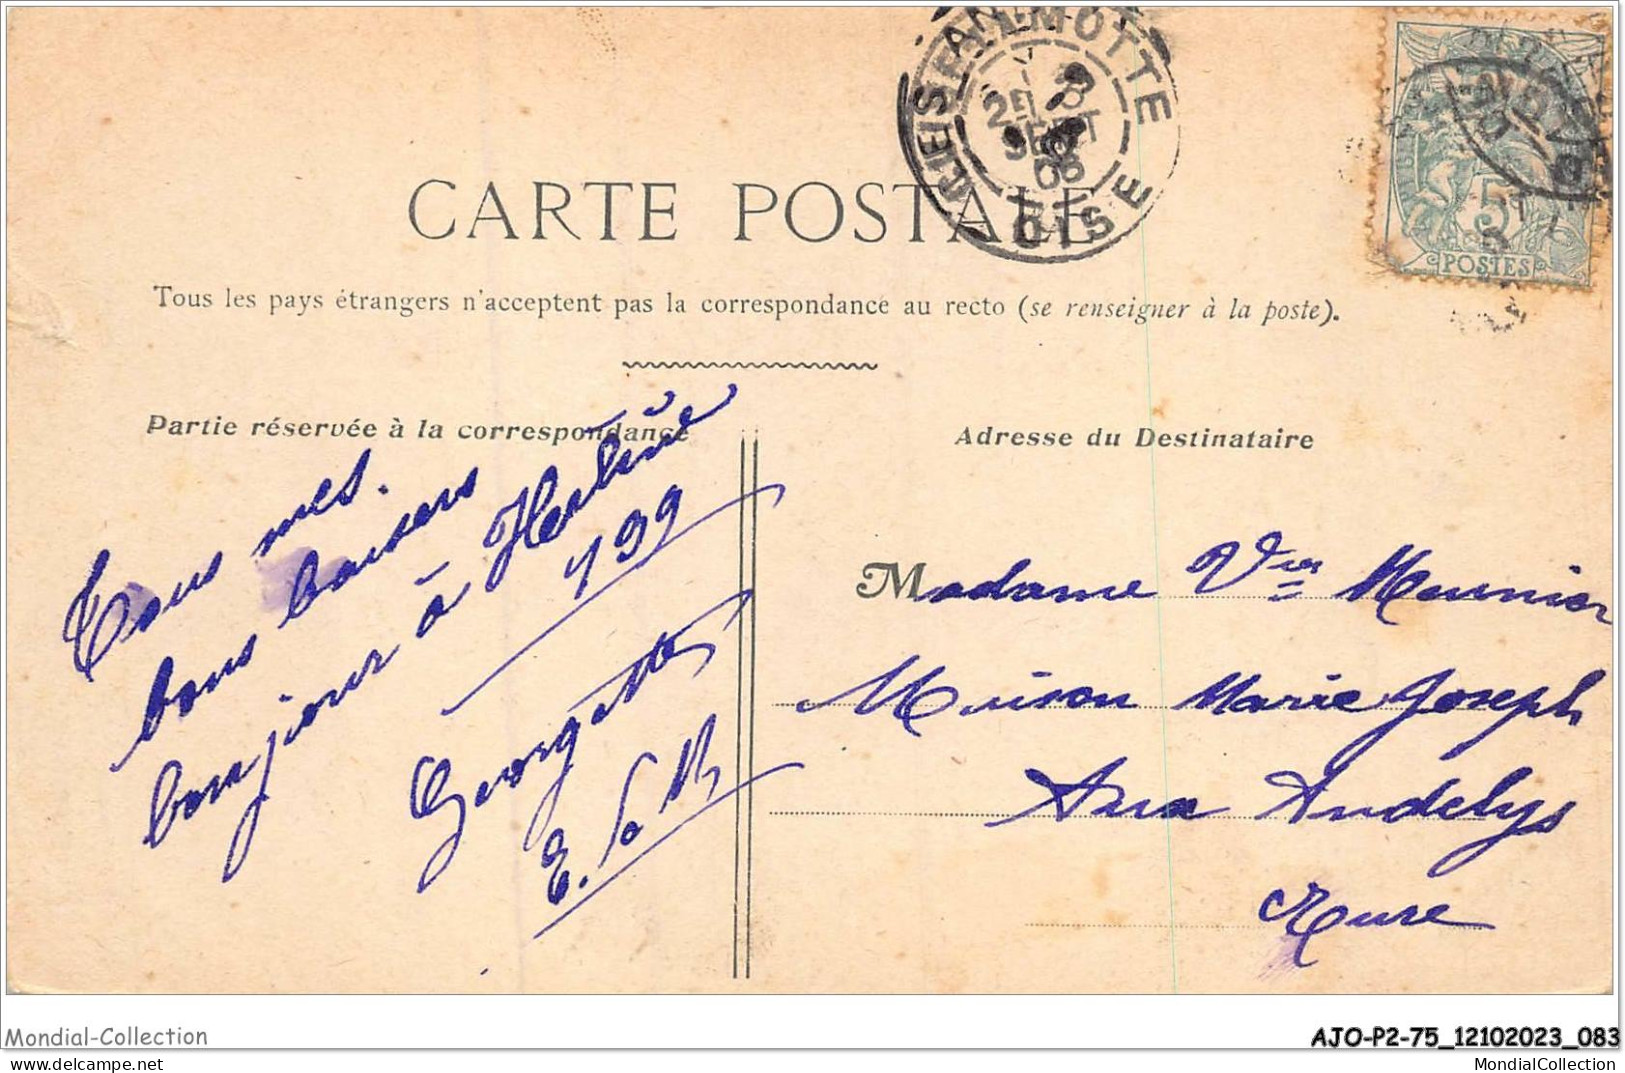 CARTE POSTALE
Tous les pays étrangers n'acceptent pas la correspondance au recto (se renseigner à la poste).
Partie réservée à la correspondance
Adresse du Destinataire
Tous mes.
bons baisers
bonjour à
199
Georgette
E.
Madame Vve Meunier
Maison Marie Joseph
Aux Andelys
Eure
MOTTE
OISE
SEPT
5
POSTES
Mondial-Collection
AJO-P2-75_12102023_083
MondialCollection